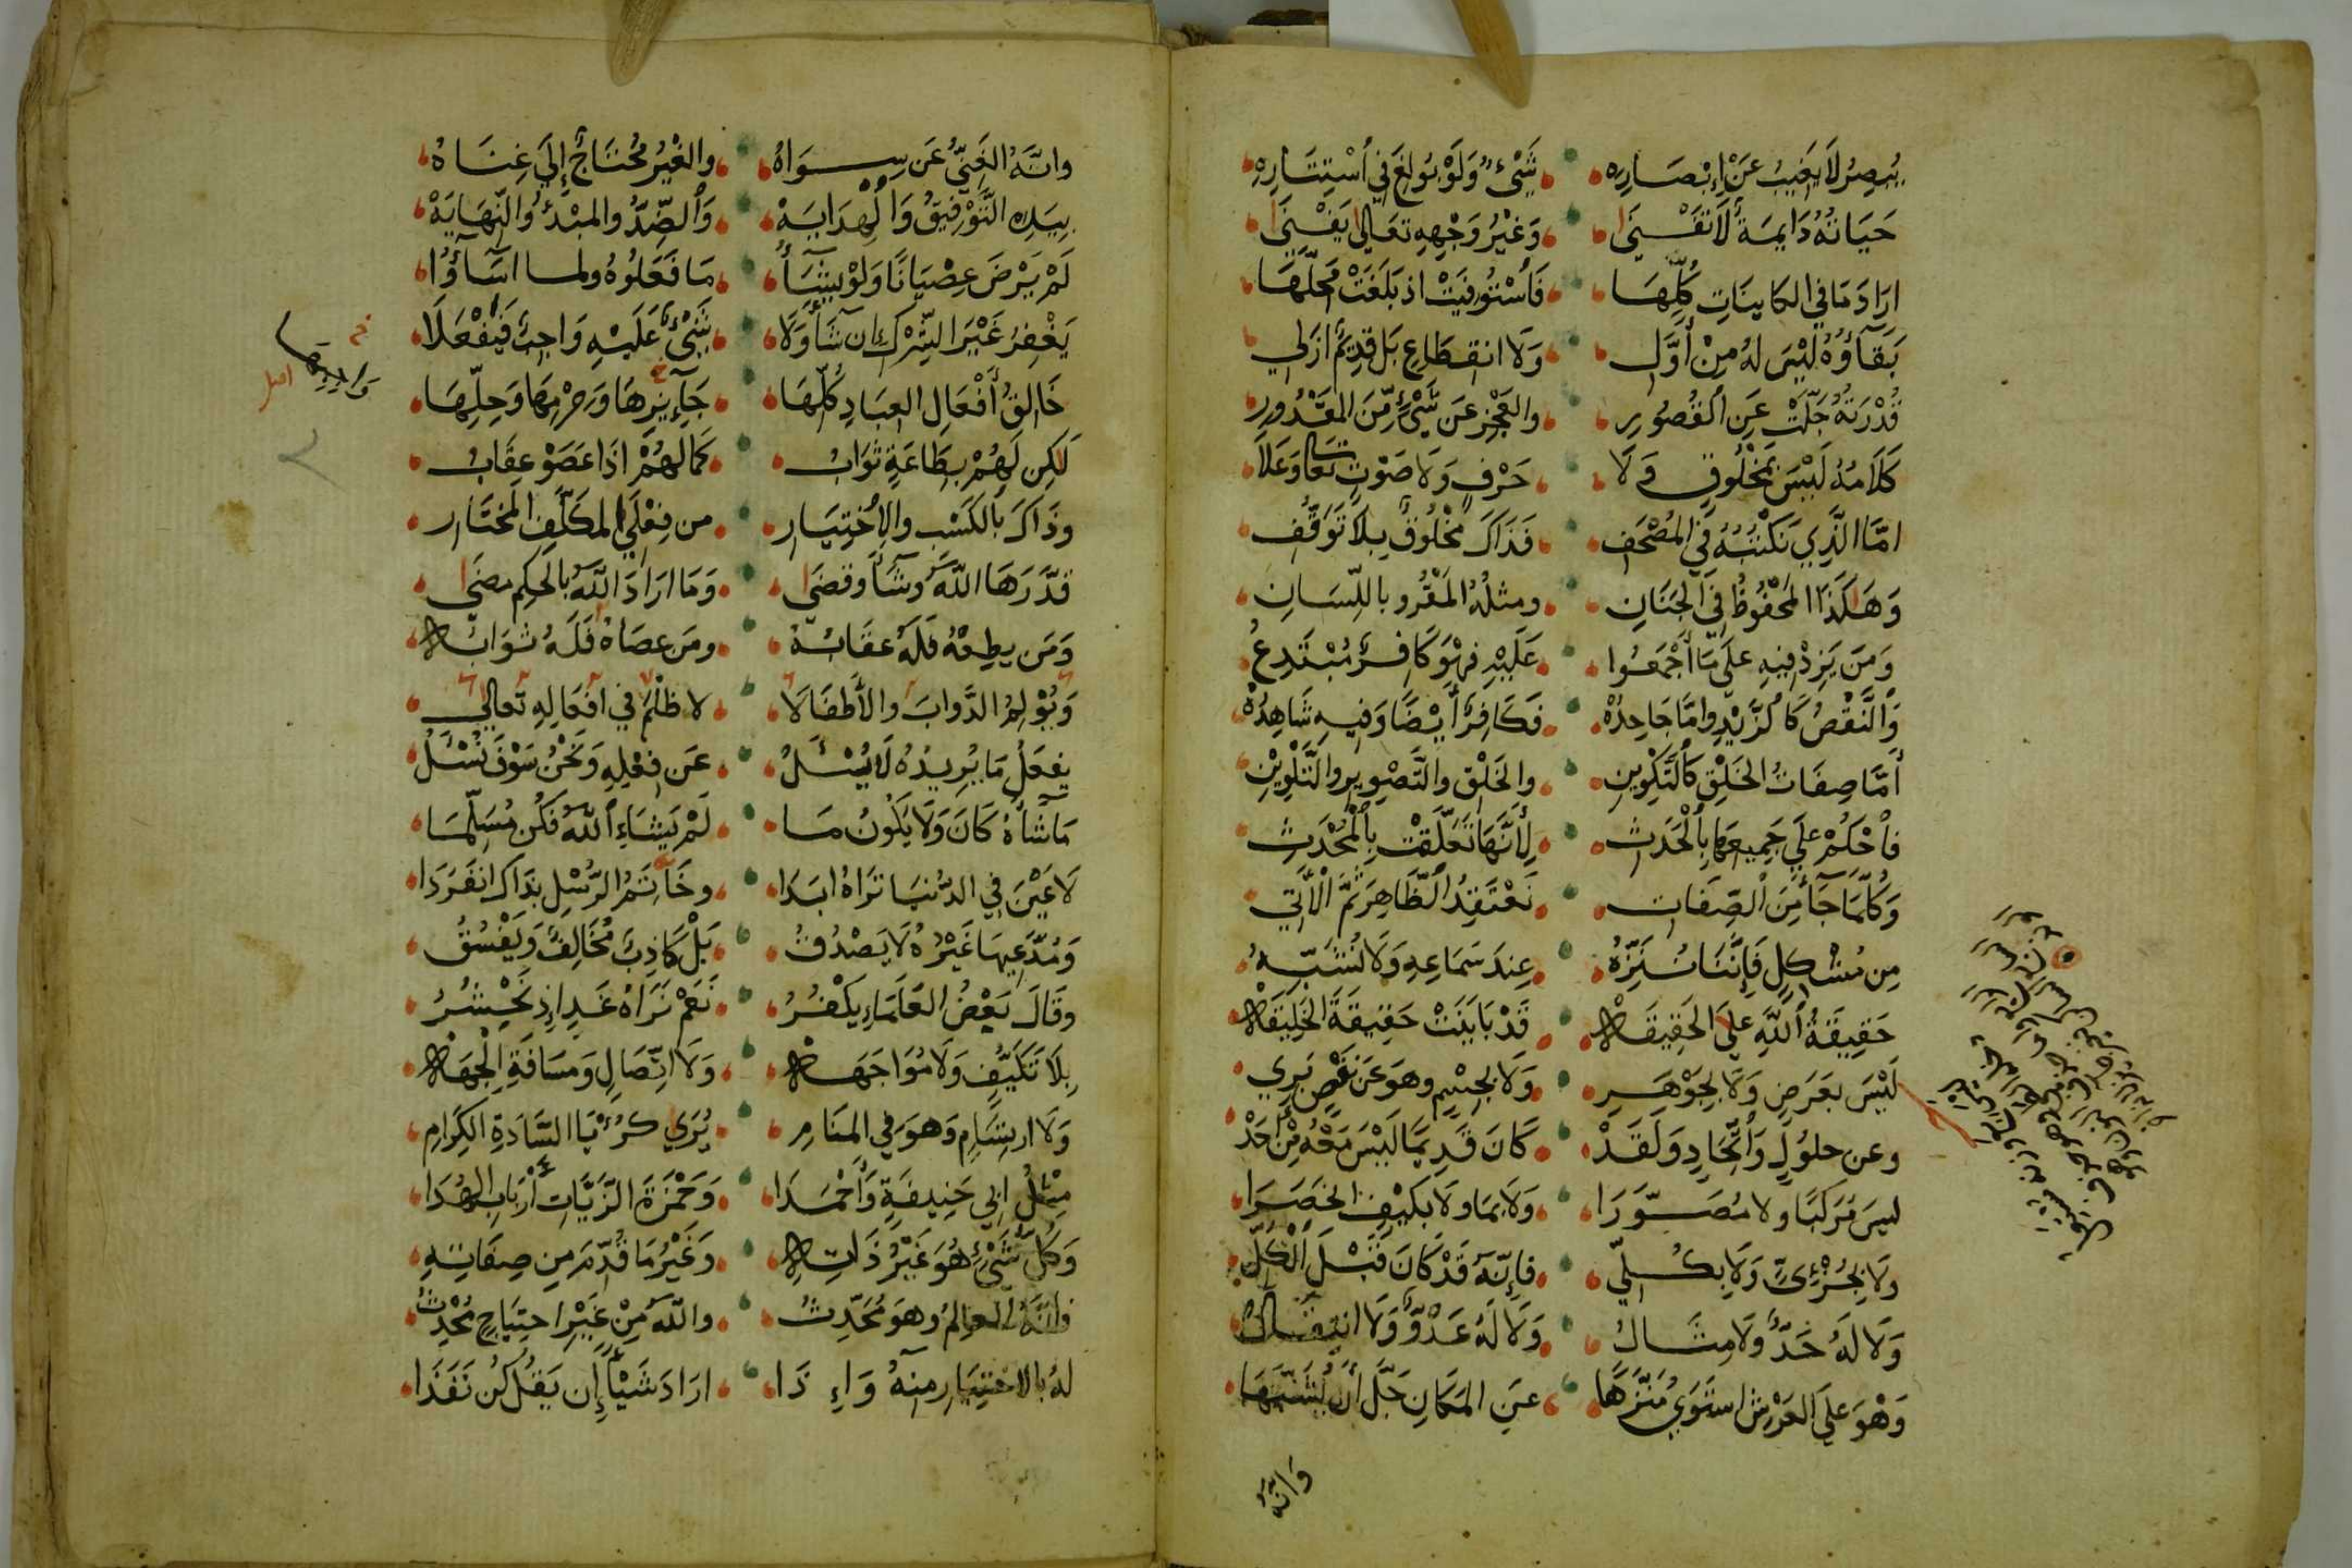 يُبْصِرُ لَا يَغِيبُ عَنْ إِبْصَارِهِ شَيْءٌ وَلَوْ بُولِغَ فِي اسْتِتَارِهِ
حَيَاتُهُ دَايِمَةٌ لَا تَفْنَى وَغَيْرُ وَجْهِهِ تَعَالَى يَفْنَى
ارَادَ مَا فِي الكَايِنَاتِ كُلِّهَا فَاسْتُوفِيَتْ اذ بَلَغَتْ مَحَلَّهَا
بَقَآؤُهُ لَيْسَ لَهُ مِنْ أَوَّلِ وَلَا انقِطَاعِ بَل قَدِيمٌ ازَلِي
قُدْرَتُهُ جَلَّتْ عَنِ القُصُورِ والعَجْزِ عَن شَيْءٍ مِّنَ المَقْدُورِ
كَلَامُهُ لَيْسَ بمَخْلُوقٍ وَلَا حَرْفٍ وَلَا صَوْتٍ تَعَالَى وَعَلَا
امَّا الَّذِي نَكْتُبُهُ فِي المُصْحَفِ فَذَاكَ مَخْلُوقٌ بِلَا تَوَقُّفِ
وَهَكَذَا المَحْفُوظُ فِي الجَنَانِ ومِثلُهُ المَقْرُو باللِّسَانِ
وَمَن يَزِدْ فِيهِ عَلَى مَا أَجْمَعُوا عَلَيْهِ فهْوَ كَافِرٌ مُبْتَدِعُ
وَالنَّقْصُ كَالزَّيْدِ وامَّا جَاحِدُهْ فَكَافِرٌ أَيْضًا وَفِيهِ شَاهِدُهْ
أَمَّا صِفَاتُ الخَلْقِ كَالتَّكْوِينِ والخَلْقِ والتَّصْوِيرِ والتَّلْوِينِ
فاحْكُمْ عَلَى جَمِيعِهَا بِالْحَدَثِ لِأَنَّهَا تَعَلَّقَتْ بِالْمُحْدَثِ
وَكُلَّمَا جَآءَ مِنَ الصِّفَاتِ نَعْتَقِدُ الظَّاهِرَ ثُمَّ الْآتِي
مِن مُشْكِلٍ فَإِنَّنَا نُنَزِّهُ عِندَ سَمَاعِهِ وَلَا نُشَبِّهُ
حَقِيقَةُ اللَّهِ عَلَى الحَقِيقَهْ قَدْ بَايَنَتْ حَقِيقَةَ الخَلِيقَهْ
لَيْسَ بعَرَضٍ وَلَا بِجَوْهَرِ وَلَا بِجِسْمٍ وهوَ عَن نَقْصٍ بَرِي
وعن حلُولٍ وَاتِّحَادٍ وَلَقَدْ كَانَ قَدِيمًا لَيْسَ مَعْهُ مِنْ أَحَدْ
ليسَ مُرَكَّبًا ولا مُصَوَّرَا وَلَا بمَا ولَا بكَيْفٍ انحَصَرَا
ولَا بِجُزْئِيٍّ وَلَا بِكُلِّي فإِنَّهُ قَدْ كَانَ قَبْلَ الْكُلِّ
وَلَا لَهُ حَدٌّ ولَا مِثَالُ وَلَا لَهُ عَدٌّ وَلَا انتِقَالُ
وَهْوَ عَلَى العَرْشِ اسْتَوَى مُنَزَّهَا عنِ المَكَانِ جَلَّ أَن يُشَبَّهَا
وَانَّهُ
وانَّهُ الغَنِيُّ عَن سِوَاهُ والغَيْرُ مُحْتَاجٌ إِلَى غِنَاهُ
بِيَدِهِ التَّوْفِيقُ وَالهِدَايَهْ وَالضِّدُّ والمَبْدَؤُ والنِّهَايَهْ
لَمْ يَرْضَ عِصْيَانًا وَلَوْ يَشَأُ مَا فَعَلُوهُ ولما اسَآؤُا
يَغْفِرُ غَيْرَ الشِّرْكِ ان شَآءَ وَلَا شَيْءٌ عَلَيْهِ وَاجِبٌ فَيُفْعَلَا
خَالِقُ أَفْعَالِ العِبَادِ كُلِّهَا جَآئِزِهَا وَحِرْمِهَا وَحِلِّهَا
لَكِن لَهُمْ بِطَاعَةٍ ثَوَابُ كَمَا لهُمْ اذَا عَصَوْ عِقَابُ
وذَاكَ بالكَسْبِ والِاخْتِيَارِ من فِعْلِي المكَلَّفِ المخْتَارِ
قدَّرَهَا اللَّهُ وشَآءَ وقضَى وَمَا ارَادَ اللَّهُ بالحكِم مضَى
وَمَن يطِعْهُ فَلَهُ عقَابُهْ ومَن عصَاهُ فَلَهُ ثَوَابُهْ
وَيُوْلِمُ الدَّوابَ والأَطفَالَا لا ظُلْمَ فِي افْعَالِهِ تَعَالى
يفعَلُ مَا يُرِيدُهُ لَا يُسْئَلُ عَن فِعْلِهِ وَنَحْنُ سَوْفَ نُسْئَلُ
مَا شَآءَهُ كَانَ وَلَا يَكُونُ مَا لَمْ يَشَاءِ اللَّهُ فَكُن مُسَلِّمَا
لَا عَيْنَ فِي الدُّنيَا تَرَاهُ ابَدَا وخَاتَمُ الرُّسْلِ بذَاكَ انفَرَدَا
وَمُدَّعِيهَا غَيْرُهُ لَا يَصْدُقُ بَلْ كَاذِبٌ مُخَالِفٌ وَيَفْسُقُ
وقَالَ بَعْضُ العُلَمَاءِ يكْفُرُ نَعَمْ نَرَاهُ غَدًا إِذ نُحْشَرُ
بِلَا تَكَيُّفٍ وَلَا مُوَاجَهَهْ وَلَا اتِّصَالٍ وَمَسَافَةِ الْجِهَهْ
وَلَا ارتِسَامٍ وَهوَ فِي المنَامِ يُرَى كرُؤْيَا السَّادَةِ الكِرَامِ
مِثْلُ ابي حَنِيفَةٍ وَأَحْمَدَا وَحَمْزَةَ الزَّيَّاتِ أَرْبَابِ الهُدَا
وَكُلُّ شَيْءٍ هُوَ غَيْرُ ذَاتِهِ وَغَيْرُ مَا قُدِّمَ مِن صِفَاتِهِ
فإنَّهُ العالَمُ وهوَ مُحْدَثُ واللَّهُ مِنْ غَيْرِ احتِيَاجٍ مُحْدِثُ
لهُ بالاخْتِيَارِ منهُ وَإِذَا ارَادَ شَيْأً إِن يَقُل كُن نَفَذَا